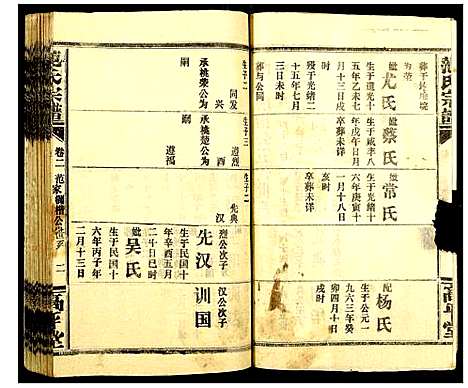 范氏宗譜
葬于坟堆垸
为茔
妣尤氏
生于道光十
五年乙未七
月十三日戌
时
殁于光绪二
十五年七月
二十三亥时
葬与公同
妣蔡氏
生于咸丰八
年戊午日月
卒葬未详
妣常氏
生于光绪十
六年庚寅十
一月十八日
卒葬未详
配杨氏
生于公元一
九六三年癸
卯四月十日
戌时
高平堂
生子二
同发
兴
承祧荣公为
嗣
生子三
遵烈
酉
承祧楚公为
嗣
遵福
生子二
先典
汉
烈公次子
先汉
生于民国十
年辛酉五月
二十日巳时
妣吴氏
生于民国十
六年丙子年
二月十三日
汉公次子
训国
范氏宗譜
卷二
二
高平堂